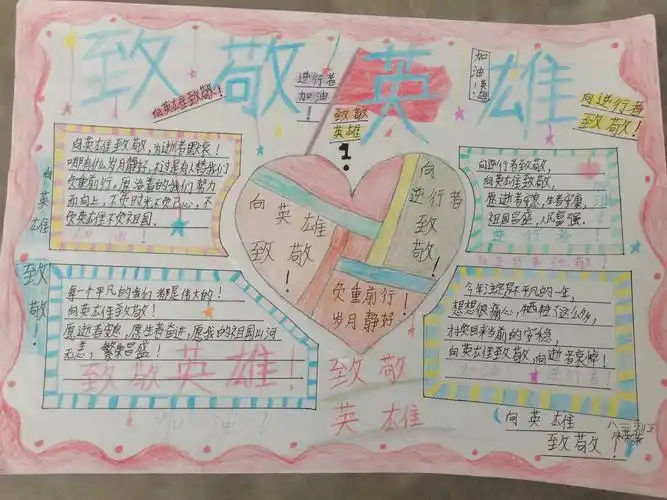 致敬英雄
向英雄致敬!
逆行者
加油!
致敬
英雄
加油!英雄
向逆行者
致敬!
向英雄致敬,为逝者默哀!
哪有什么岁月静好,不过是有人替我们
负重前行,愿活着的我们努力
而向上,不负时光不负己心,不
负英雄不负祖国.
加油!
向英雄
致敬!
向英雄
致敬!
向
逆行者
致
敬!
负重前行!
岁月静好!
向逆行者致敬,
向英雄致敬,
愿逝者安息,生者安康,
祖国昌盛,人民富强.
逆行者
每一个平凡的我们都是伟大的!
向英雄致敬!
愿逝者安息,愿生者奋进,愿我的祖国山河
无恙,繁荣昌盛!
致敬英雄!
加油!
今年注定是不平凡的一年,
想想很痛心,牺牲了这么多,
才换回来当前的安稳,
向英雄致敬,向逝者哀悼!
逆行者!
致敬
英雄
向英雄
致敬!